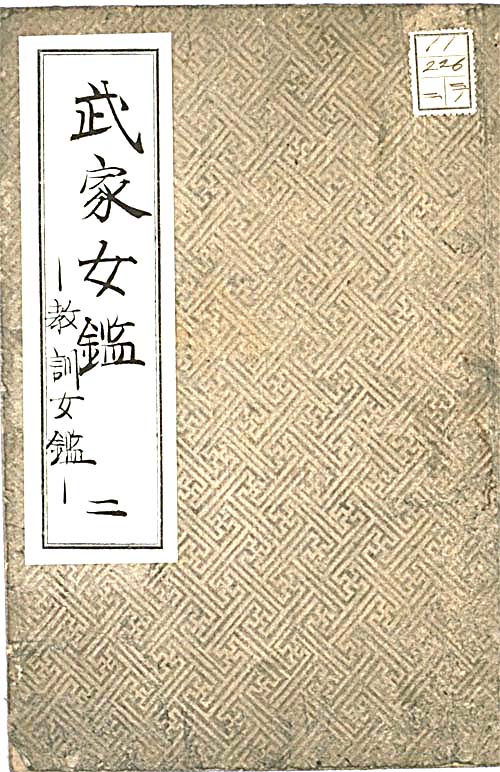 武家女鑑
―教訓女鑑―
二
11
226
二 三